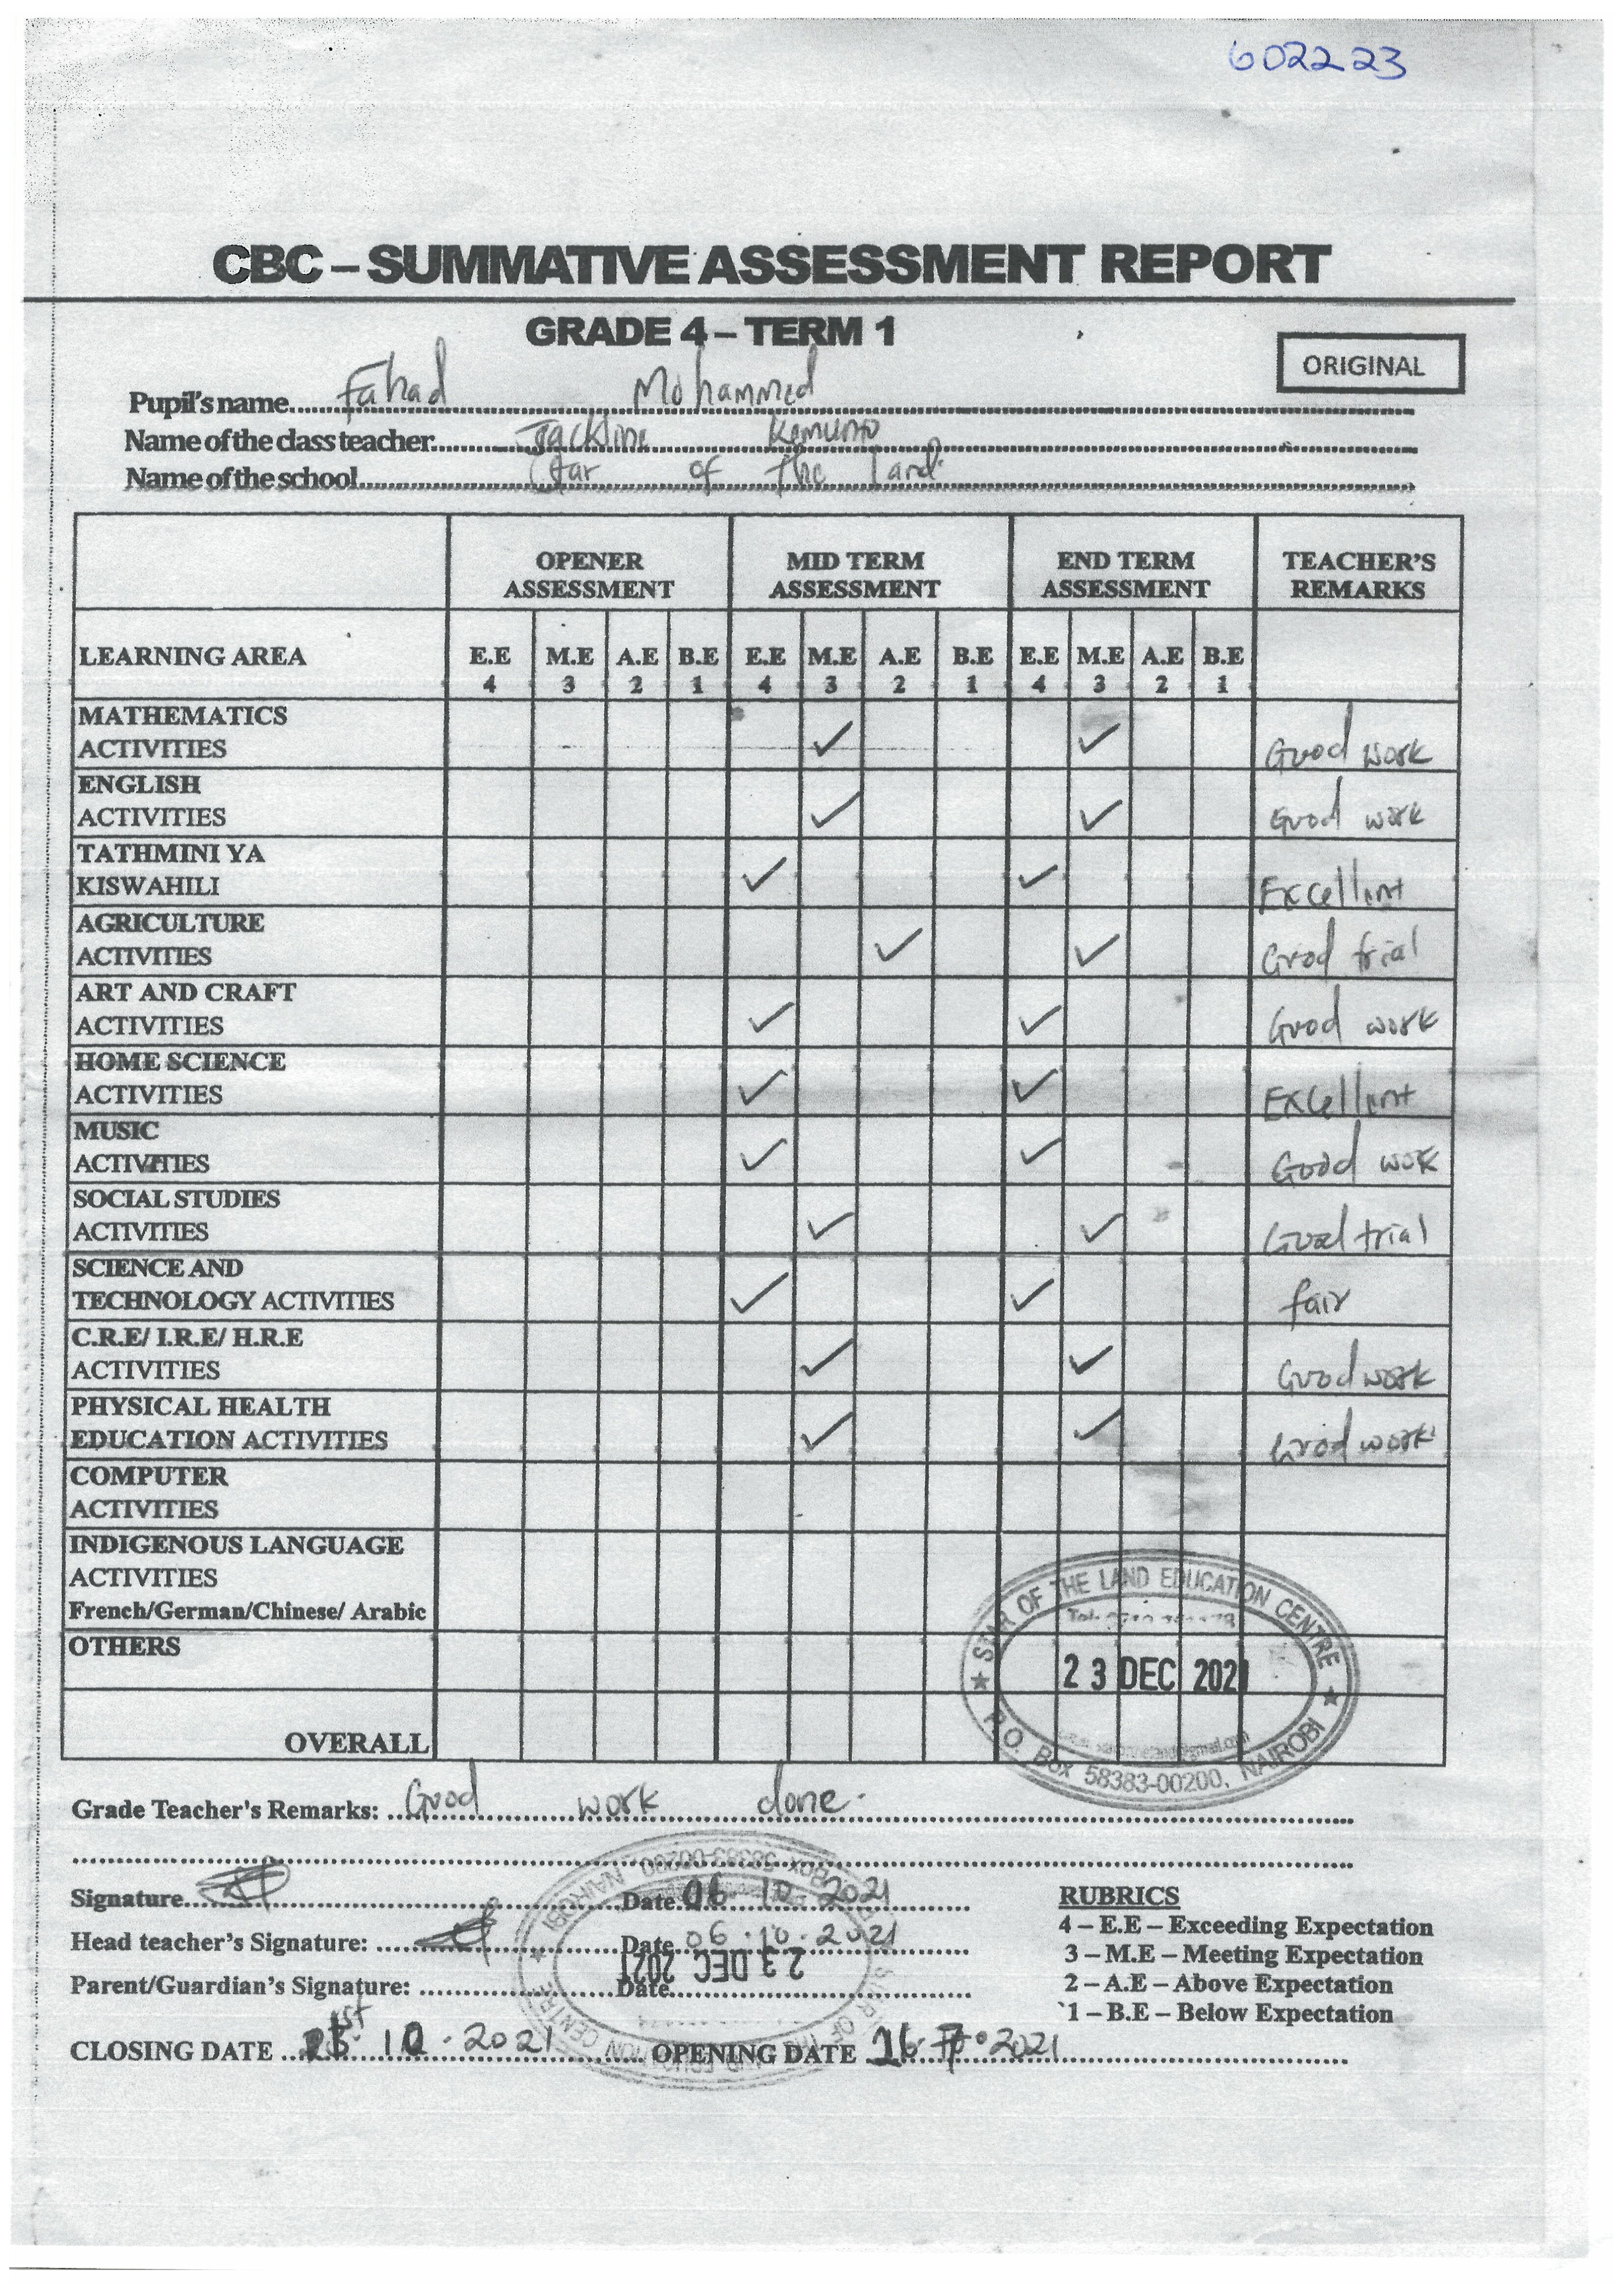 602223
CBC – SUMMATIVE ASSESSMENT REPORT
GRADE 4 – TERM 1
ORIGINAL
Pupil's name Fahad Mohammed
Name of the class teacher Jackline Kemunto
Name of the school Star of the land
OPENER ASSESSMENT MID TERM ASSESSMENT END TERM ASSESSMENT TEACHER'S REMARKS
LEARNING AREA E.E 4 M.E 3 A.E 2 B.E 1 E.E 4 M.E 3 A.E 2 B.E 1 E.E 4 M.E 3 A.E 2 B.E 1
MATHEMATICS ACTIVITIES ✓ ✓ Good work
ENGLISH ACTIVITIES ✓ ✓ Good work
TATHMINI YA KISWAHILI ✓ ✓ Excellent
AGRICULTURE ACTIVITIES ✓ ✓ Good trial
ART AND CRAFT ACTIVITIES ✓ ✓ Good work
HOME SCIENCE ACTIVITIES ✓ ✓ Excellent
MUSIC ACTIVITIES ✓ ✓ Good work
SOCIAL STUDIES ACTIVITIES ✓ ✓ Good trial
SCIENCE AND TECHNOLOGY ACTIVITIES ✓ ✓ fair
C.R.E/ I.R.E/ H.R.E ACTIVITIES ✓ ✓ Good work
PHYSICAL HEALTH EDUCATION ACTIVITIES ✓ ✓ Good work
COMPUTER ACTIVITIES
INDIGENOUS LANGUAGE ACTIVITIES
French/German/Chinese/ Arabic
OTHERS
OVERALL
STAR OF THE LAND EDUCATION CENTRE
23 DEC 2021
P.O. Box 58383-00200, NAIROBI
Grade Teacher's Remarks: Good work done.
Signature Date 06.10.2021
Head teacher's Signature: Date 06.10.2021
Parent/Guardian's Signature: Date
23 DEC 2021
CLOSING DATE 10.2021 OPENING DATE 2021
RUBRICS
4 – E.E – Exceeding Expectation
3 – M.E – Meeting Expectation
2 – A.E – Above Expectation
1 – B.E – Below Expectation